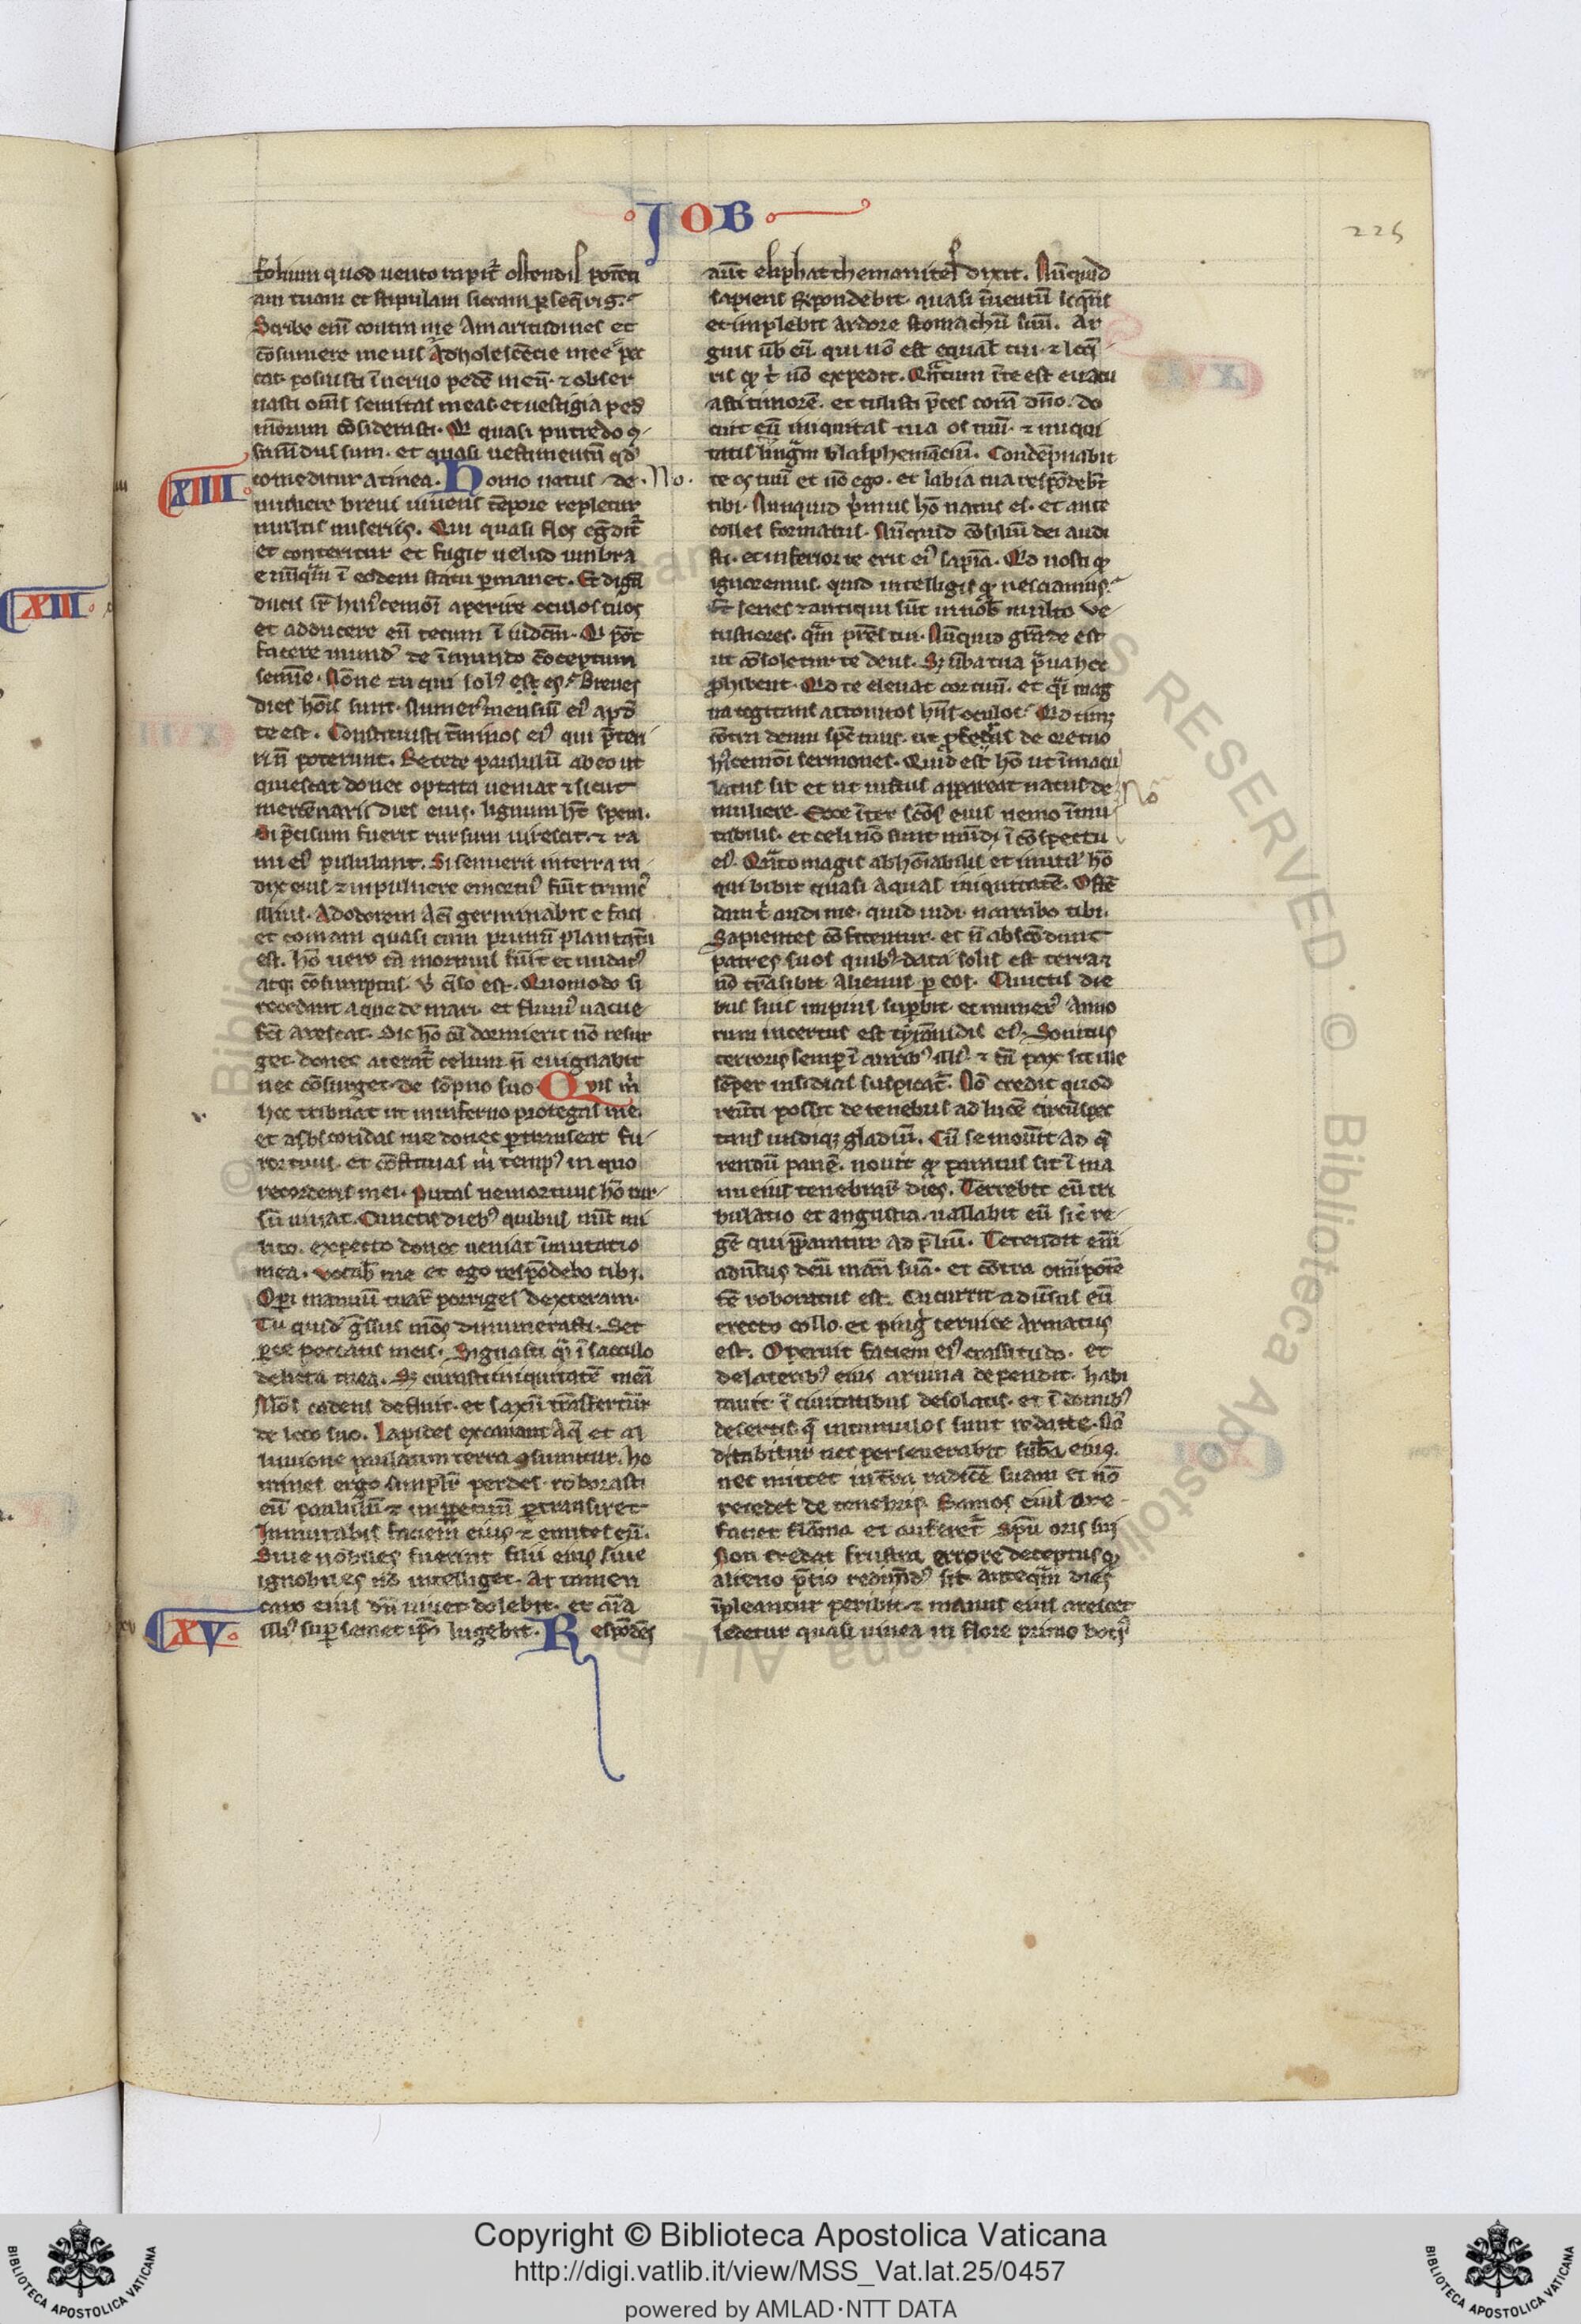 JOB
225
folium quod uento rapit᷑ ostendis potēti
am tuam et stipulam siccam ꝑseq̄ris.
Scribe eni᷑ contra me Amaritudines et
cōsumere me uis Adholescēcie mee pec
cat᷑. posuisti ī neruo pedē meū. ⁊ obser
uasti oīs semitas meas. et uestigia ped
meorum cōsiderasti. Qi quasi putredo ꝯ
sumēdus sum. et quasi uestimentū qd᷑
comeditur a tinea. Homo natus de
XIIII
No.
muliere breui uiuens tēpore repletur
multis miseriis. Qui quasi flos egͤdit᷑
et conteritur et fugit uelud umbra
XII
e nūq̄m ī eodem statu ꝑmanet. Et dignū
ducis sr̄ huiꝰcemōi aperire oculos tuos
et adducere eū tecum ī iudiciū. Qi pōt
facere mund᷑ de īmundo cōceptum
semīe. Nōne tu qui solꝰ es. Breues
dies hoīs sunt. Numerꝰ mensiū eiꝰ apd᷑
te est. Constituisti t̄minos eiꝰ qui p̄teri
ri n̄ poterunt. Recede paululū ab eo ut
quiescat donec optata ueniat ⁊ sicut
mercēnarii dies eius. lignum hēt spem.
Si p̄cisum fuerit rursum uirescit. ⁊ ra
mi eiꝰ pululant. Si senuerit in terra ra
dix eius ⁊ in puluere emortuꝰ fuīt truncꝰ
illius. Ad odorem aq̄ germinabit e faci
et comam quasi cum primū plantatū
est. hō uero cū mortuus fuīt et nudatꝰ
atqꝫ cōsumptus. u᷑ q̄so est. Quomodo si
recedant aque de mari. et fluuiꝰ uacue
fc̄t arescat. Sic hō cū dormierit nō resur
get. donec aterat᷑ celum n̄ euigilabit
nec cōsurget de sōpno suo. Quis m̄
hec tribuat ut in inferno protegas me.
et abscondas me donec ꝑtranseat fu
ror tuus. et cōstituas m̄ tempꝰ in quo
recorderis mei. Putas ne mortuus hō rur
sū uiuat. Cunctis diebꝰ quibus nūc mi
lito. expecto donec ueniat īmutatio
mea. Vocab̄ me et ego respōdebo tibi.
Oꝑi manuū tuar᷑ porriges dexteram.
Tu quid᷑ gͤssus meos dinumerasti. Set
ꝑce peccatis meis. Signasti q̄i ī sacculo
delicta mea. Sꝫ curasti iniquitatē meā
Mōs cadens defluit. et saxū trāsfertur
de loco suo. Lapides excauant Aq̄ et al
luuione paulatim terra ꝯsumitur. ho
mines ergo simılr̄ perdes. roborasti
eū paululū ⁊ in perpetuū ꝑtransiret
Inmutabis faciem eius ⁊ emites eū.
Siue nobiles fuerint filii eius siue
ignobiles nō intelliget. At tamen
caro eius dū uiuet dolebit. et aīa
illiꝰ suꝑ semet ipo lugebit. Respōdēs
XV
aut᷑ eliphat themanites dixit. Nūquid
sapiens respondebit. quasi ī uentū loq̄ns
et inplebit ardore stomachū suū. Ar
guis ūb eū qui nō est equal᷑ tui. ⁊ loq̄
ris qͦ t᷑ nō expedit. Quātum ī te est euacu
asti timorē. et tulisti p̄ces corā dn̄o. do
cuit eī iniquitas tua os tuū. ⁊ imitaris
lingᷓm blasphemāciū. Condēpnabit
te os tuū et nō ego. et labia tua respōdebt̄
tibi. Nunquid p̄mus hō natus es. et ante
colles formatus. Nūquid cōsiliū dei audi
sti. et inferior te erit eiꝰ sapīa. Qd nosti qͦ
ignoremus. quid intelligis qͦ nesciamus.
Et senes ⁊ antiqui sūt in nob̄ multo ve
tustiores. qͣm pr̄es tui. Nūquid grāde est
ut cōsoletur te deus. Sꝫ ūba tua praua hec
ꝓhibent. Qd te eleuat cor tuū. et q̄i mag
na cogitans attonitos hn̄s oculos. Qd tumꝫ
cōtra deum spc̄ tuus. ut ꝓferas de ore tuo
hꝰcemōi sermones. Quid est hō ut īmacu
latus sit et ut iustus appareat natus de
No
muliere. Ecce īter scōs eius nemo īmu
tabilis. et celi nō sunt mūdi ī cōspectu
eiꝰ. Quāto magis abhōiabilis et inutil᷑ hō
qui bibit quasi aquas iniquitatē. Ostē
dam t᷑ audi me. quid uidi. narrabo tibi.
Sapientes cōfitentur. et n̄ abscōdunt
patres suos quibꝰ data solis est terra ⁊
nō trāsibit alienus ꝑ eos. Cunctis die
bus suis impius suꝑbit. et numerꝰ anno
rum incertus est tyrānidis eiꝰ. Sonitus
terroris semꝑ ī auribꝰ illiꝰ. ⁊ cū pax sit ille
sēper insidias suspicat᷑. Nō credit quod
reūti possit de tenebris ad lucē circūspec
tans undiqꝫ gladiū. Cū se mouīt ad q̄
rendū panē. nouit qͦ paratus sit ī ma
nu eius tenebrar᷑ dies. Terrebit eū tri
bulatio et angustia. uallabit eū sic᷑ re
gē qui p̄paratur ad p̄liū. Tetendit eni᷑
aduersus deū manū suā. et cōtra om̄ipotē
tē roboratus est. Cucurrit aduersus eū
erecto collo. et pingͥ ceruice armatus
est. Operuit faciem eiꝰ crassitudo. et
de lateribꝰ eius aruina dependit. habi
tauit ī ciuitatibus desolatis. et ī domibꝰ
desertis. q̄ in tumulos sunt redacte. Nō
ditabitur nec perseuerabit sub̄a eiuꝰ
nec mittet in t̄ra radicē suam et nō
recedet de tenebris. Ramos eius are
faciet flāma et auferet᷑ spū oris sui
Non credat frustra errore deceptus qͦ
alieno p̄tio redimēdꝰ sit. anteqͣm dies
īpleantur peribit. ⁊ manus eius arescet
ledetur quasi uinea in flore primo botrꝰ
Copyright © Biblioteca Apostolica Vaticana
http://digi.vatlib.it/view/MSS_Vat.lat.25/0457
powered by AMLAD·NTT DATA
BIBLIOTECA APOSTOLICA VATICANA
BIBLIOTECA APOSTOLICA VATICANA